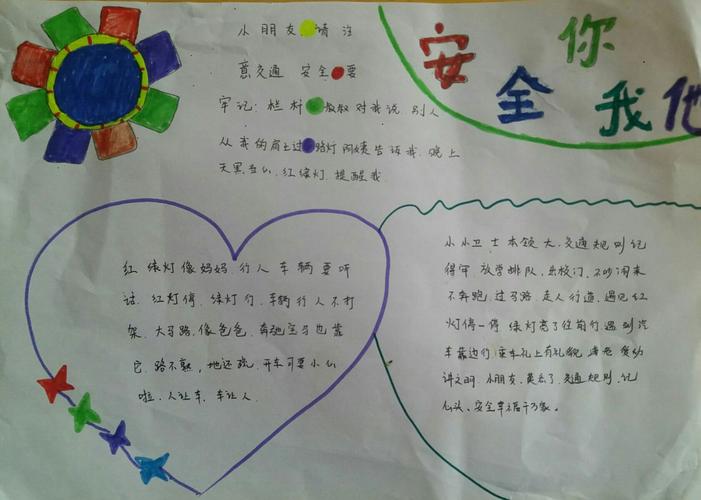 安全你我他
小朋友 请注
意交通 安全 要
牢记: 栏杆 叔叔对我说 别人
从我的肩上过 路灯阿姨告诉我.晚上
天黑当心.红绿灯.提醒我.
红绿灯像妈妈.行人车辆要听
话.红灯停.绿灯行.车辆行人不打
架.大马路.像爸爸.奔驰宝马也靠
它.路不宽,地还疏.开车可要小心
啦.人让车.车让人.
小小卫士本领大.交通规则记
得牢 放学排队.出校门.不吵闹来
不奔跑.过马路.走人行道.遇见红
灯停一停 绿灯亮了往前行 遇到汽
车靠边行.乘车礼上有礼貌
讲文明.小朋友. 交通规则.记
心头.安全幸福千万家.